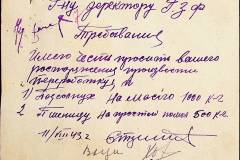 Г-ну директору Г.З.Ф.
Требование
Имею честь просить вашего
распоряжения произвести
переработку:
1 Подсолнух На масло 1000 к-г
2 Пшеницу На простой помол 500 к-г.
11/VIII 43 г.